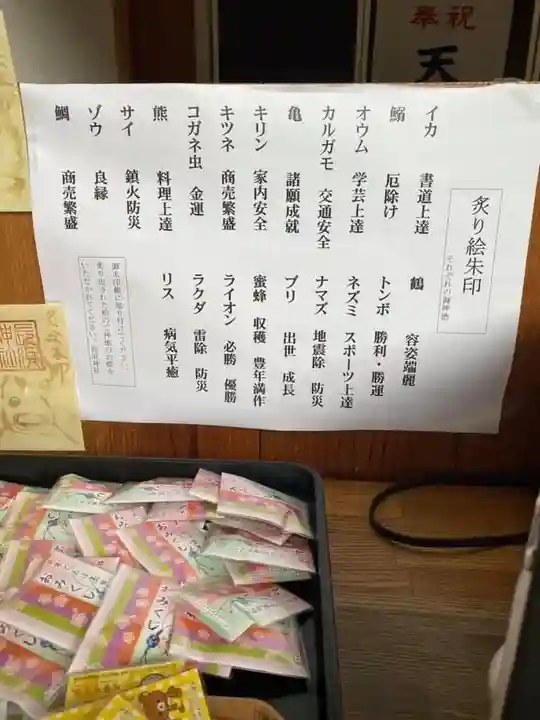 奉祝
天
炙り絵朱印
それぞれの御神徳
イカ 書道上達
鰯 厄除け
オウム 学芸上達
カルガモ 交通安全
亀 諸願成就
キリン 家内安全
キツネ 商売繁盛
コガネ虫 金運
熊 料理上達
サイ 鎮火防災
ゾウ 良縁
鯛 商売繁盛
鶴 容姿端麗
トンボ 勝利・勝運
ネズミ スポーツ上達
ナマズ 地震除 防災
ブリ 出世 成長
蜜蜂 収穫 豊年満作
ライオン 必勝 優勝
ラクダ 雷除 防災
リス 病気平癒
御朱印帳に貼り付けてください。
おみくじ
おみくじ
おみくじ